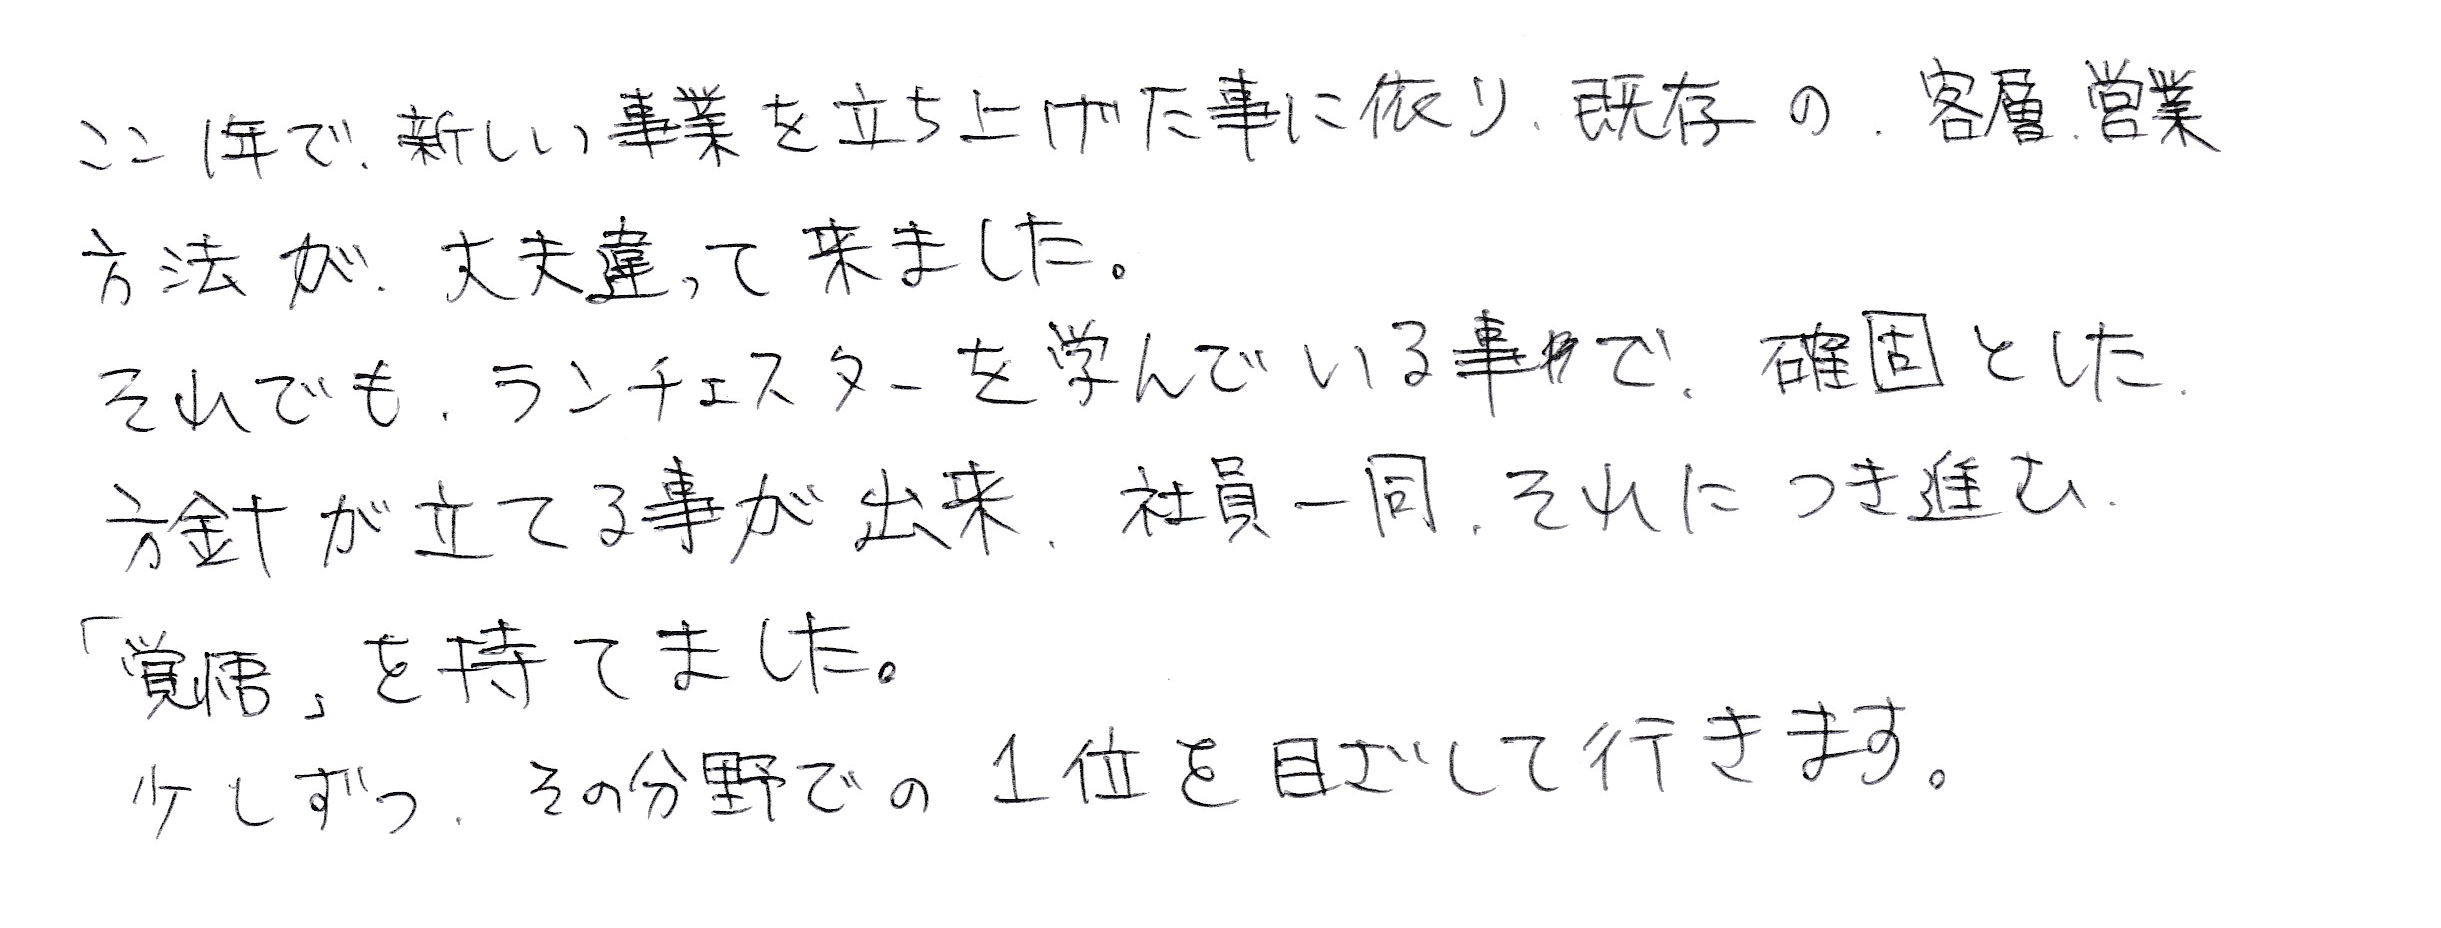 ここ1年で、新しい事業を立ち上げた事に依り、既存の、客層、営業
方法が、丈夫違って来ました。
それでも、ランチェスターを学んでいる事で、確固とした、
方針が立てる事が出来、社員一同、それにつき進む、
「覚悟」を持てました。
少しずつ、その分野での1位を目ざして行きます。